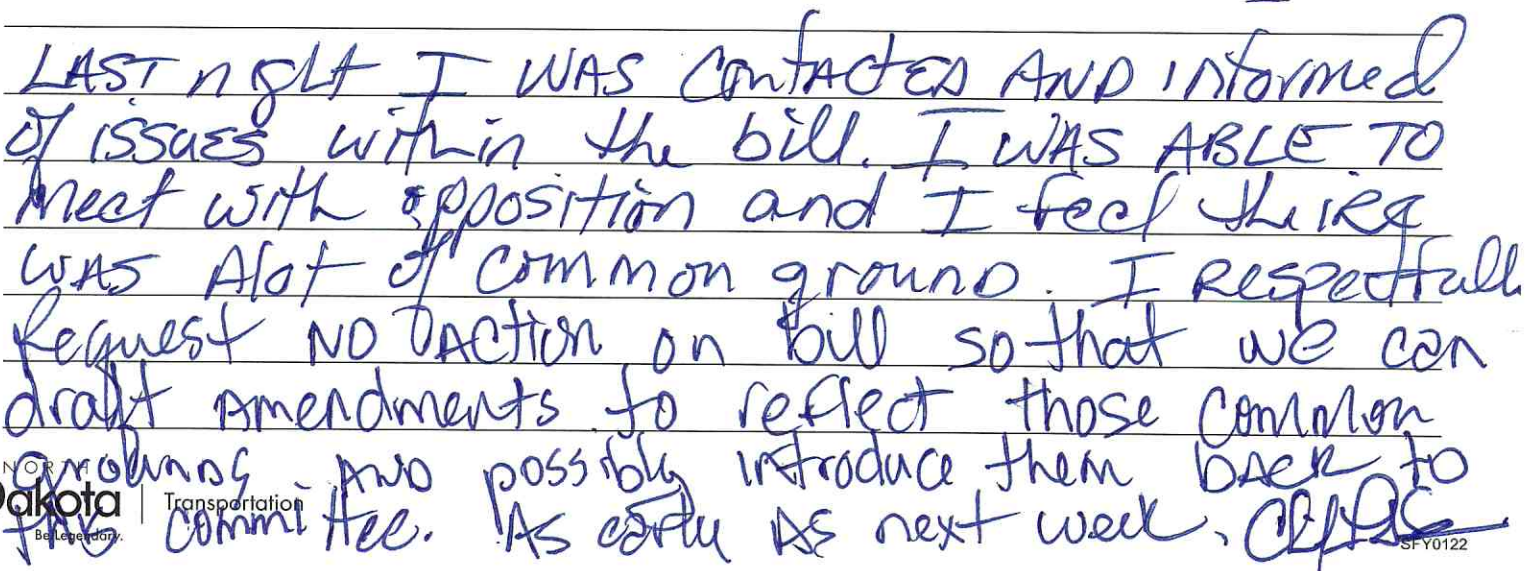 LAST night I WAS CONTACTED AND informed
of issues within the bill. I WAS ABLE TO
meet with opposition and I feel theire
WAS Alot of common ground. I Respectfull
Request NO ACTION on bill so that we can
draft Amendments to reflect those common
grounds AND possibly introduce them back to
the committee. As early AS next week.
NORTH
Dakota | Transportation
Be Legendary.
SFY0122